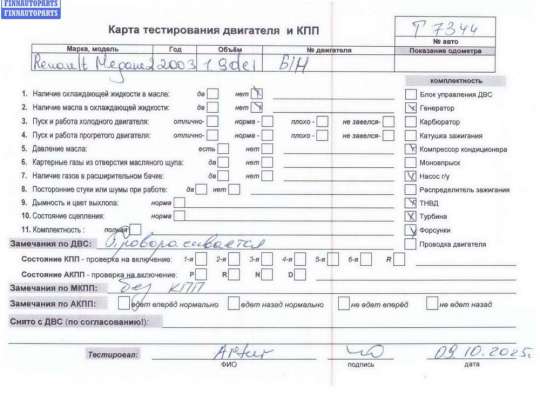 FINNAUTOPARTS
Карта тестирования двигателя и КПП
Т 7344
№ авто
Марка, модель Год Объём № двигателя Показание одометра
Renault Megane 2 2003 1.9dci Б/Н
КОМПЛЕКТНОСТЬ
1. Наличие охлаждающей жидкости в масле: да нет
Блок управления ДВС
2. Наличие масла в охлаждающей жидкости: да нет
Генератор
3. Пуск и работа холодного двигателя: отлично- норма - плохо - не завелся-
Карбюратор
4. Пуск и работа прогретого двигателя: отлично- норма - плохо - не завелся-
Катушка зажигания
5. Давление масла: есть нет
Компрессор кондиционера
6. Картерные газы из отверстия масляного щупа: да нет
Моновпрыск
7. Наличие газов в расширительном бачке: да нет
Насос г/у
8. Посторонние стуки или шумы при работе: да нет
Распределитель зажигания
9. Дымность и цвет выхлопа: норма
ТНВД
10. Состояние сцепления: норма
Турбина
11. Комплектность : полная
Форсунки
Замечания по ДВС: Проворачивается
Проводка двигателя
Состояние КПП - проверка на включение: 1-я 2-я 3-я 4-я 5-я 6-я R
Состояние АКПП - проверка на включение: P R N D
Замечания по МКПП: без КПП
Замечания по АКПП: едет вперёд нормально едет назад нормально не едет вперёд не едет назад
Снято с ДВС (по согласованию!):
Тестировал: Артур 09.10.2025г.
ФИО подпись дата